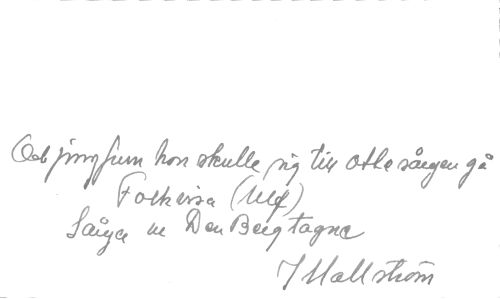 Och jungfrun hon skulle sig till ottesången gå
Folkvisa
Sång ur Den Bergtagna
I Hallström